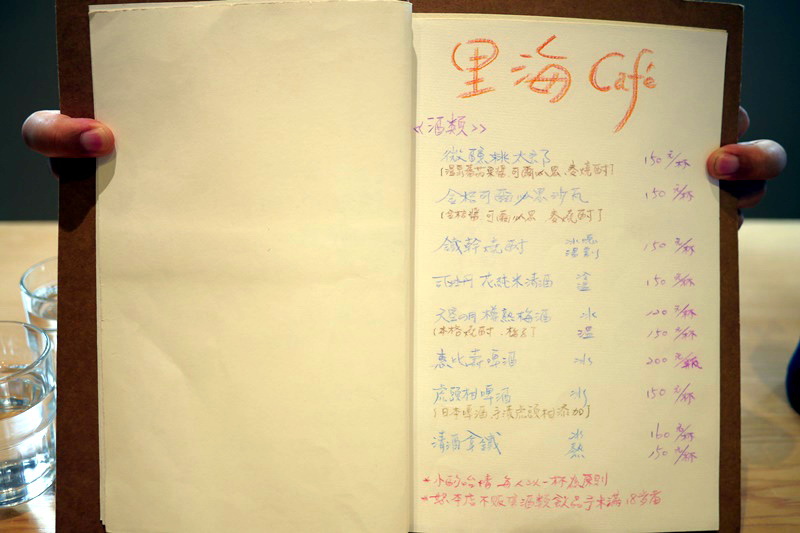 里海 Café
《酒類》
微醺桃太郎 150元/杯
可爾必思、麥燒酎)
可爾必思沙瓦 150元/杯
可爾必思 麥燒酎)
鐵幹燒酎 冰 150元/杯
花純米清酒 冷 溫 150元/杯
樽熟梅酒 冰 120元/杯
(本格燒酎 溫 150元/杯
惠比壽啤酒 冰 200元/瓶
虎頭柑啤酒 冰 150元/杯
(日本啤酒、手漬虎頭柑添加)
清酒拿鐵 冰 160元/杯
熱 150元/杯
每人以一杯為原則
本店不販售酒類飲品予未滿18歲者